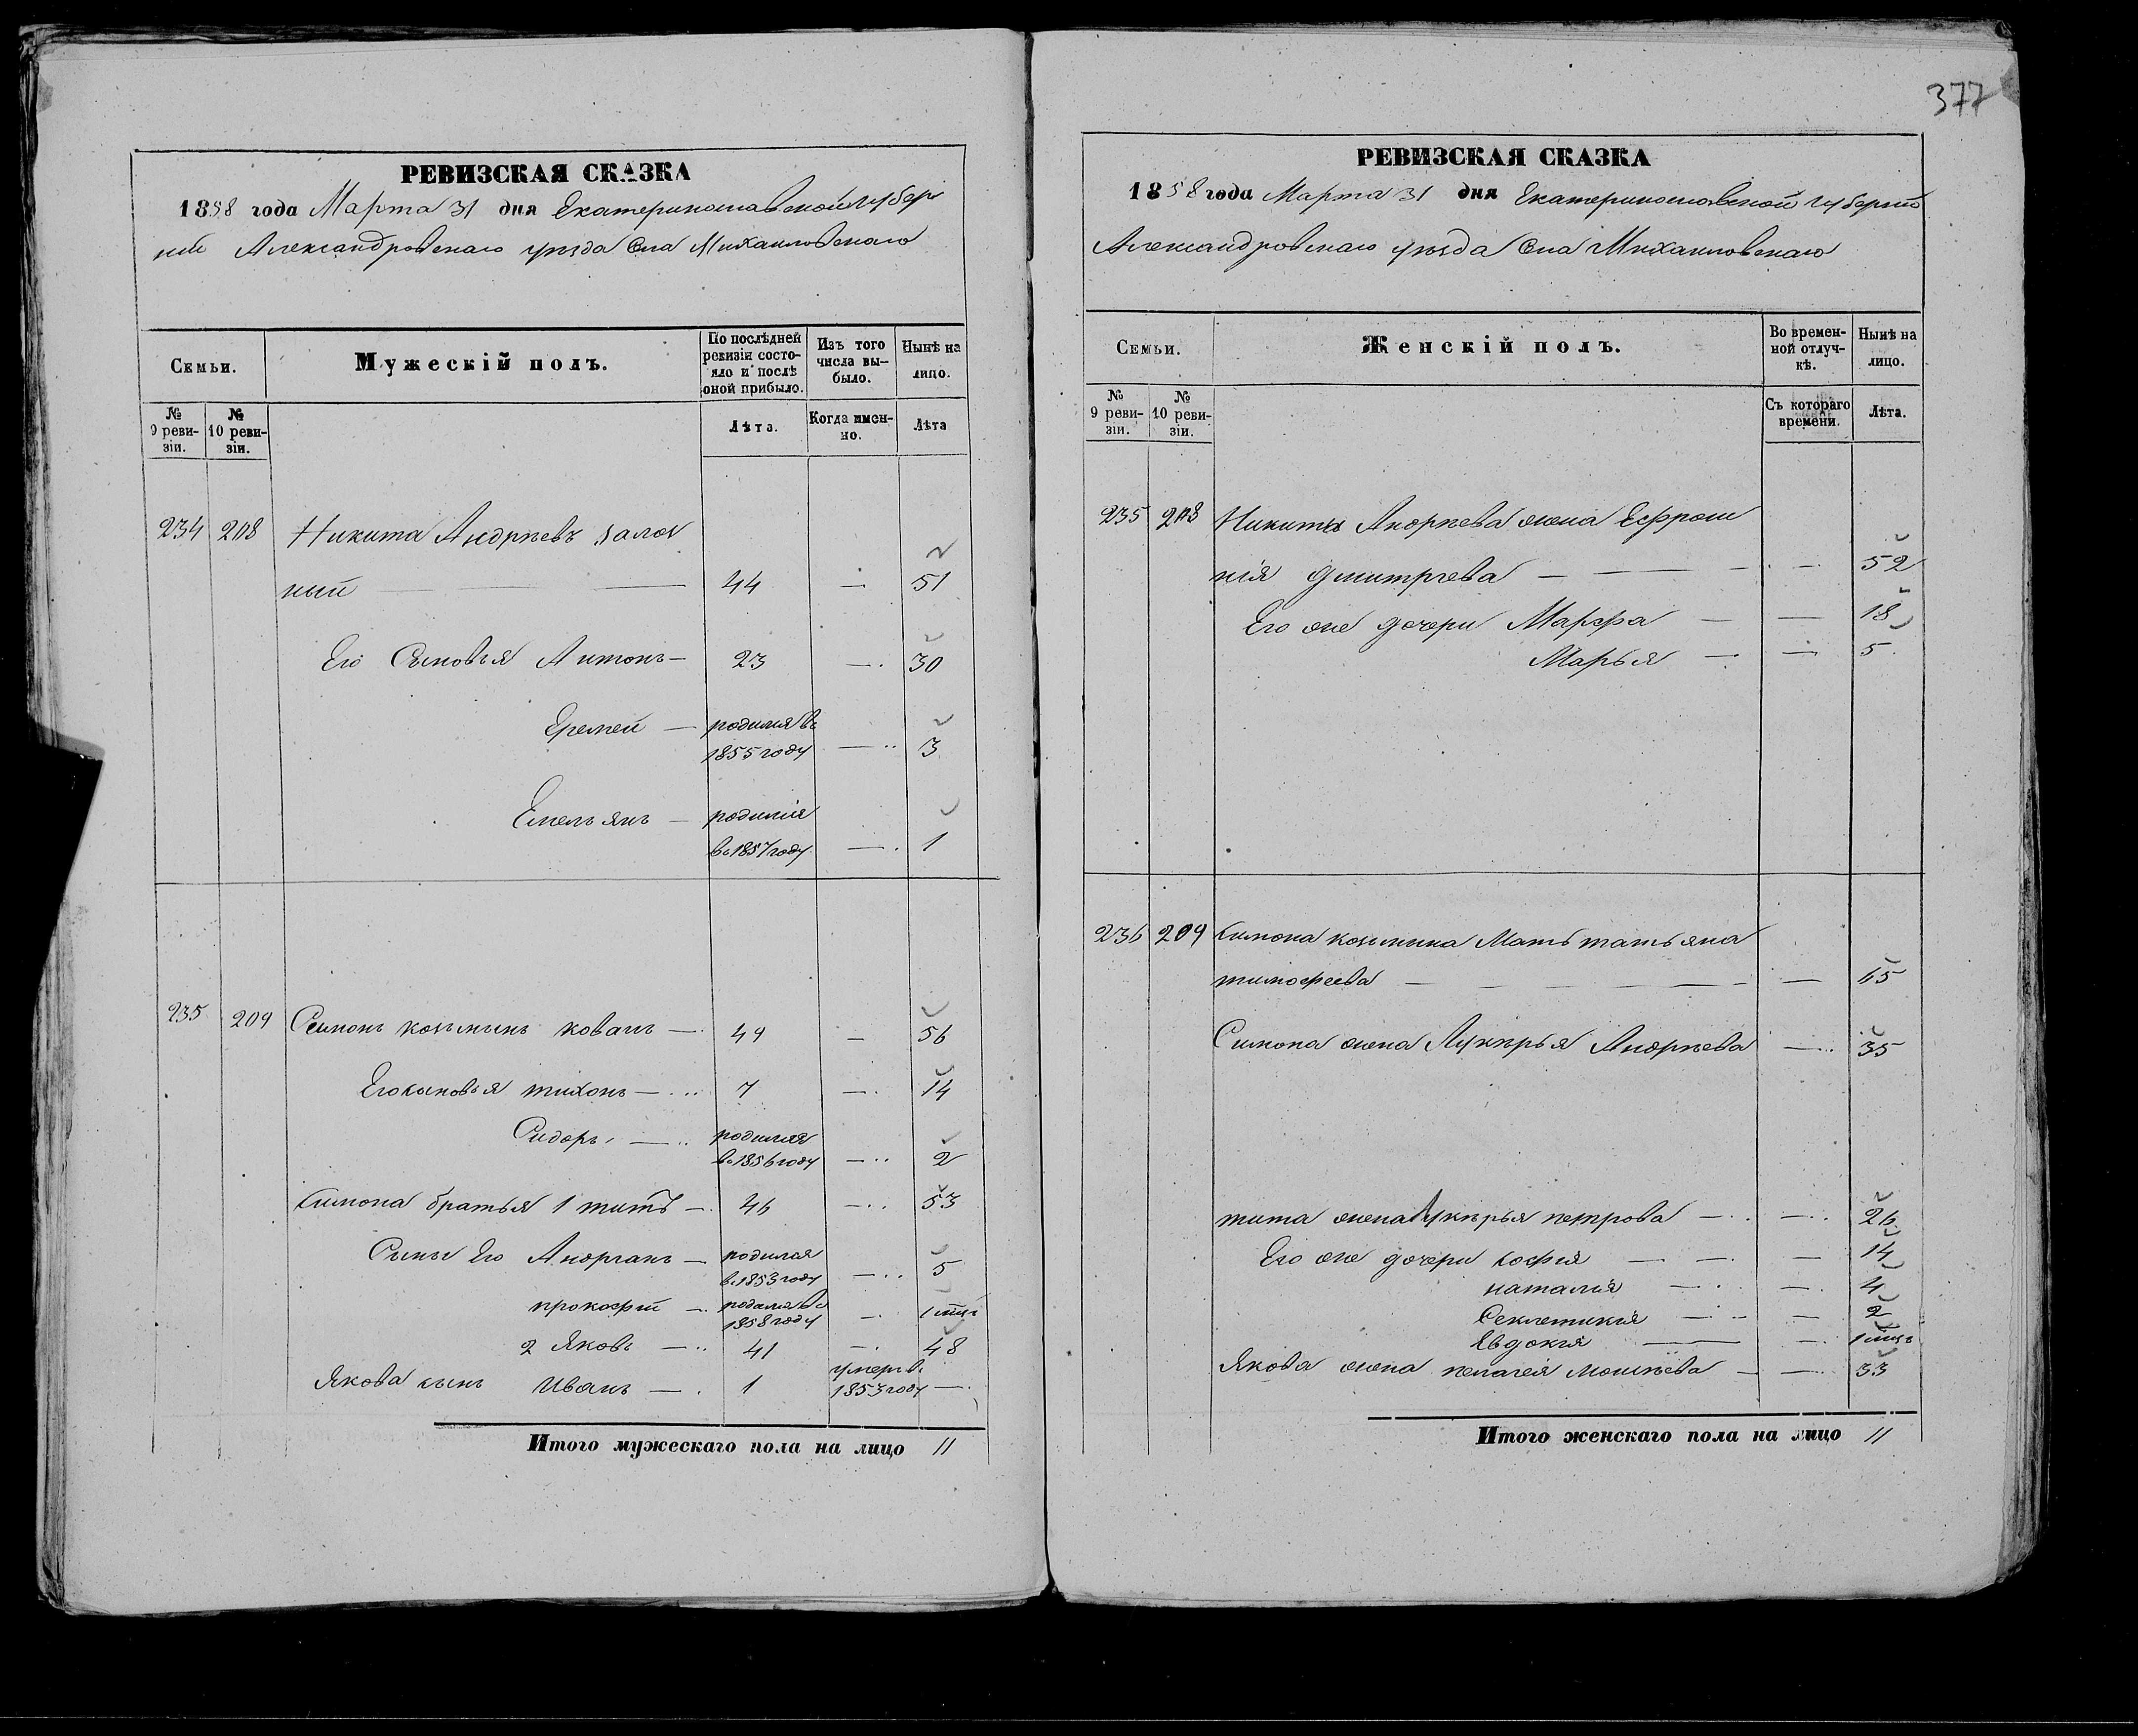 377
РЕВИЗСКАЯ СКАЗКА
1858 года Марта 31 дня Екатеринославской губер
нии Александровскаго уѣзда Села Михайловскаго
Семьи.
Мужескій полъ.
По послѣдней ревизіи состо-яло и послѣ оной прибыло.
Изъ того числа вы-было.
Нынѣ на лицо.
№ 9 реви-зіи.
№ 10 реви-зіи.
Лѣта.
Когда имен-но.
Лѣта
234 208 Никита Андрѣевъ
ный — 44 — 51
Его Сыновья Антонъ — 23 — 30
Еремей — родился въ 1855 году — 3
Емельянъ — родился въ 1857 году — 1
235 209 Симонъ козьминъ ковалъ — 49 — 56
Его сыновья тихонъ — 7 — 14
Сидоръ — родился въ 1856 году — 2
Симона братья 1 титъ — 46 — 53
Сыны Его Андріанъ — родился въ 1853 году — 5
прокофій — родился въ 1858 году — 1 мѣц
2 Яковъ — 41 — 48
Якова сынъ Иванъ — 1 умеръ въ 1853 году —
Итого мужескаго пола на лицо 11
РЕВИЗСКАЯ СКАЗКА
1858 года Марта 31 дня Екатеринославской губерніи
Александровскаго уѣзда Села Михайловскаго
Семьи.
Женскій полъ.
Во времен-ной отлуч-кѣ.
Нынѣ на лицо.
№ 9 реви-зіи.
№ 10 реви-зіи.
Съ котораго времени.
Лѣта.
235 208 Никиты Андрѣева жена Ефроси
нія дмитрѣева — — 52
Его же дочери Марфа — — 18
Марья — — 5
236 209 Симона козьмина Мать татьяна
тимофеева — — 65
Симона жена Лукѣрья Андрѣева — 35
тита жена Лукѣрья петрова — — 26
Его же дочери софія — — 14
наталія — — 4
Секлетикія — — 2
Евдокія — — 1 мѣць
Якова жена пелагея мосиѣева — — 33
Итого женскаго пола на лицо 11